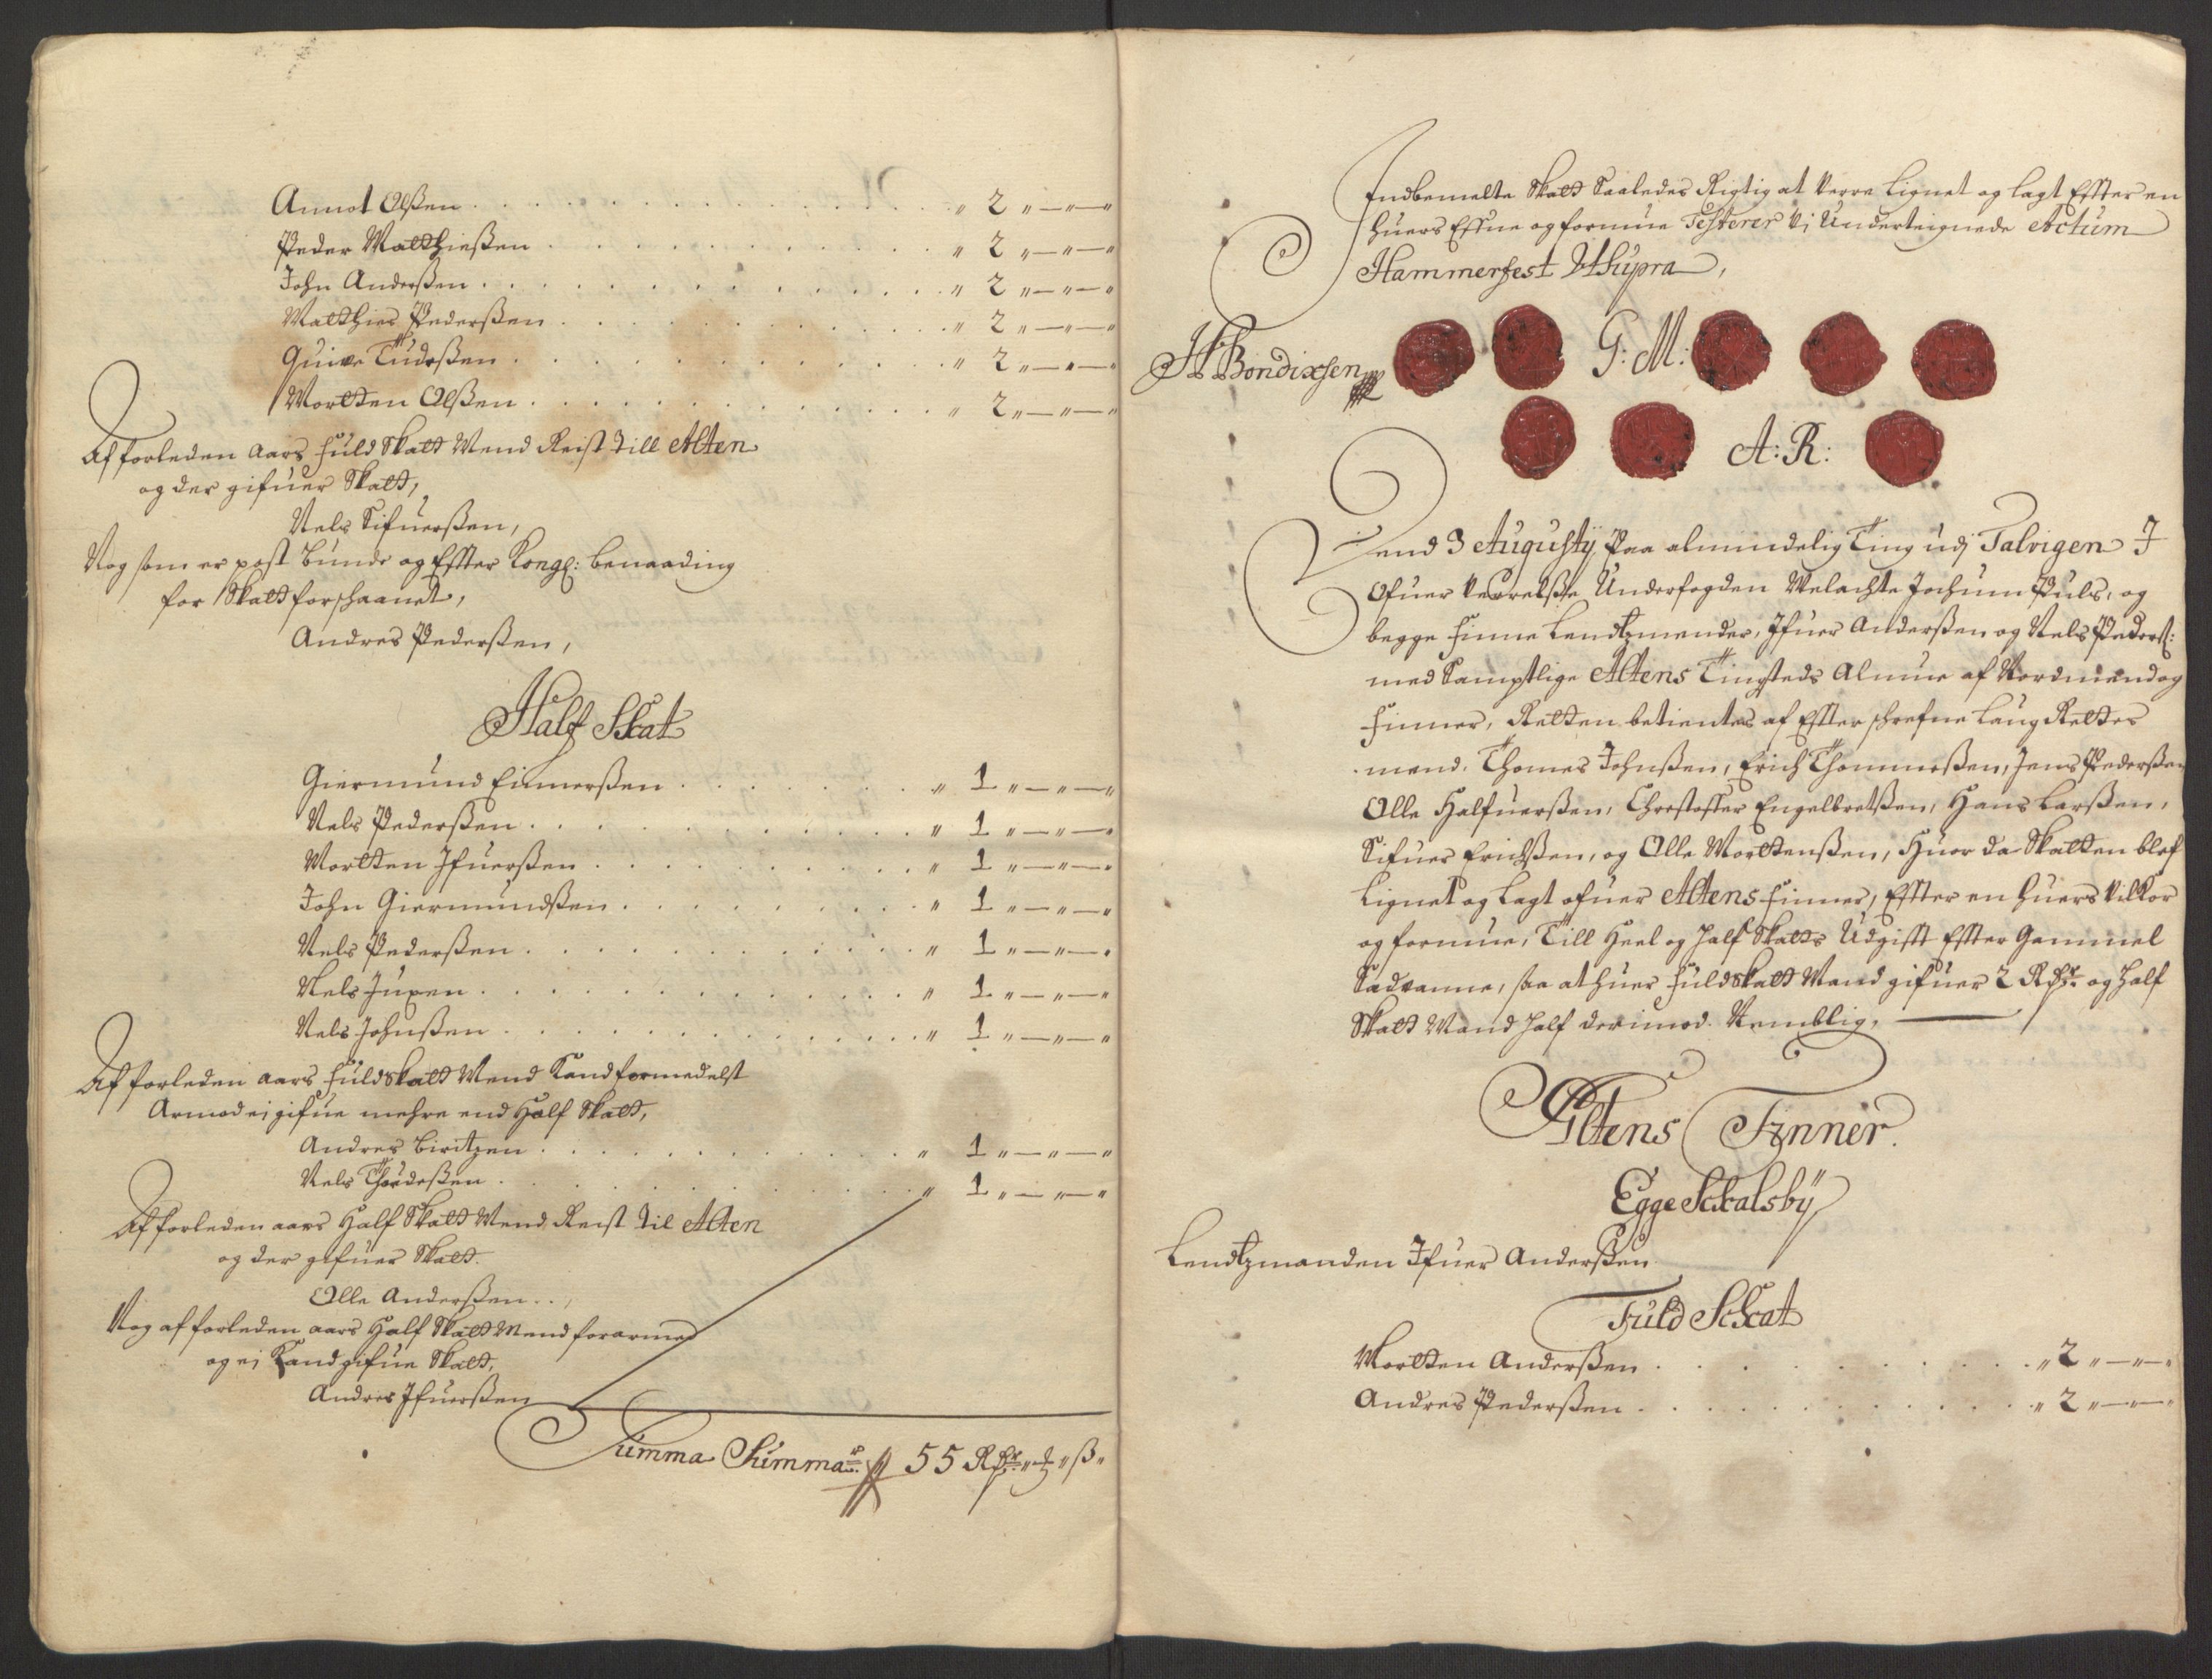 Annot Olßen . . . . . . . . " 2 " — " — "
Peder Matthießen . . . . . . . . " 2 " — " — "
John Anderßen . . . . . . . . " 2 " — " — "
Matthies Pederßen . . . . . . . . " 2 " — " — "
Guive Tudeßen . . . . . . . . " 2 " — " — "
Mortten Olßen . . . . . . . . " 2 " — " — "
Af forleden aars fuld Skatt Mend Reist till Alten
og der gifuer Skatt,
Nels Sifuerßen,
Nog som er post bunde og Effter Kongl: benaading
for Skatt forschaanet,
Andres Pederßen,
Half Skat
Giermund Einnerßen . . . . . . . " 1 " — " — "
Nels Pederßen . . . . . . . . " 1 " — " — "
Mortten Ifuerßen . . . . . . . . " 1 " — " — "
John Giermundßen . . . . . . . . " 1 " — " — "
Nels Pederßen . . . . . . . . " 1 " — " — "
Nels Juxen . . . . . . . . " 1 " — " — "
Nels Johnßen . . . . . . . . " 1 " — " — "
Af forleden aars fuld Skatt Mend Kand formedelst
Armod ej gifue mehre end Half Skatt,
Andres Biritzen . . . . . . . . " 1 " — " — "
Nels Thordeßen . . . . . . . . " 1 " — " — "
Af forleden aars Half Skatt Mend Reist til Alten
og der gifuer Skatt.
Olle Anderßen . . ,
Nog af forleden aars Half Skatt Mend forarmed
og ej Kand gifue Skatt,
Andres Ifuerßen
Summa Summar: 55 Rdr " " ß "
Indbemelte Skatt Saaledes Rigtig at verre Lignet og lagt Effter en
huers Effne og formue Testerer Vi Underteignede Actum
Hammerfest Ut Supra,
H Bendixsen
G: M:
A: R:
Dend 3 Augustij Paa almindelig Ting udj Talvigen I
Ofuer verrelße Underfogden Velachte Jochum Puls, og
begge finne Lendtzmender, Ifuer Anderßen og Nels Pederß:
med Samptlige Altens Tingsteds Almue af Nordmend og
finner, Retten betientes af Effterschrefne Laug Rettes
mend. Thomes Johnßen, Erich Thommeßen, Jens Pederßen
Olle Halfuerßen, Chrestoffer Engelbretßen, Hans Larßen,
Sifuer Erichßen, og Olle Morttenßen, Huor da Skatten blef
Lignet og Lagt ofuer Altens finner, Effter en huers Vilkor
og formue, Till Heel og half Skatts Udgifft Effter Gammel
Sedvanne, saa at huer fuld Skatt Mand gifuer 2 Rdr og half
Skatt Mand half derimod. Nemblig,
Altens Finner.
Egge Schalsbÿ
Lendtzmanden Ifuer Anderßen
Fuld Schat
Mortten Anderßen . . . . . . . . " 2 " — " — "
Andres Pederßen . . . . . . . . " 2 " — " — "